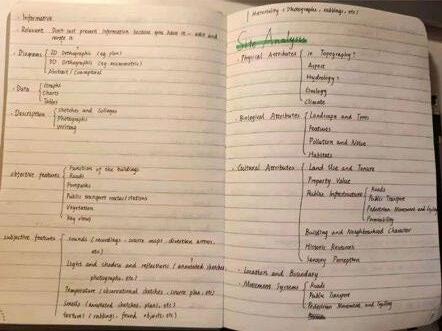 · Informative
· Relevant Don't just present information because you have it - edit and
· Diagrams { 2D Orthographic (eg. plan)
3D Orthographic (eg. axonometric)
Abstract / Conceptual
· Data { Graphs
Charts
Tables
· Description { Sketches and Collages
Photographic
Writing
objective features { Function of the buildings
Roads
Footpaths
Public transport routes/stations
Vegetation
Key views
subjective features { Sounds (recordings, source maps, direction arrows,
etc)
Light and shadow and reflections (annotated sketches,
photographs, etc)
Temperature (observational sketches, source plan, etc)
Smells (annotated sketches, plans, etc)
Textural (rubbings, found objects, etc)
Materiality (photographs, rubbings, etc)
Site Analysis
· Physical Attributes { Topography
Aspect
Hydrology
Geology
Climate
· Biological Attributes { Landscape and Trees
Features
Pollution and Noise
Habitats
· Cultural Attributes { Land Use and Tenure
Property Value
Public Infrastructure { Roads
Public Transport
Pedestrian Movement and Cycling
Permeability
Building and Neighbourhood Character
Historic Resources
Sensory Perception
· Location and Boundary
· Movement Systems { Roads
Public Transport
Pedestrian Movement and Cycling